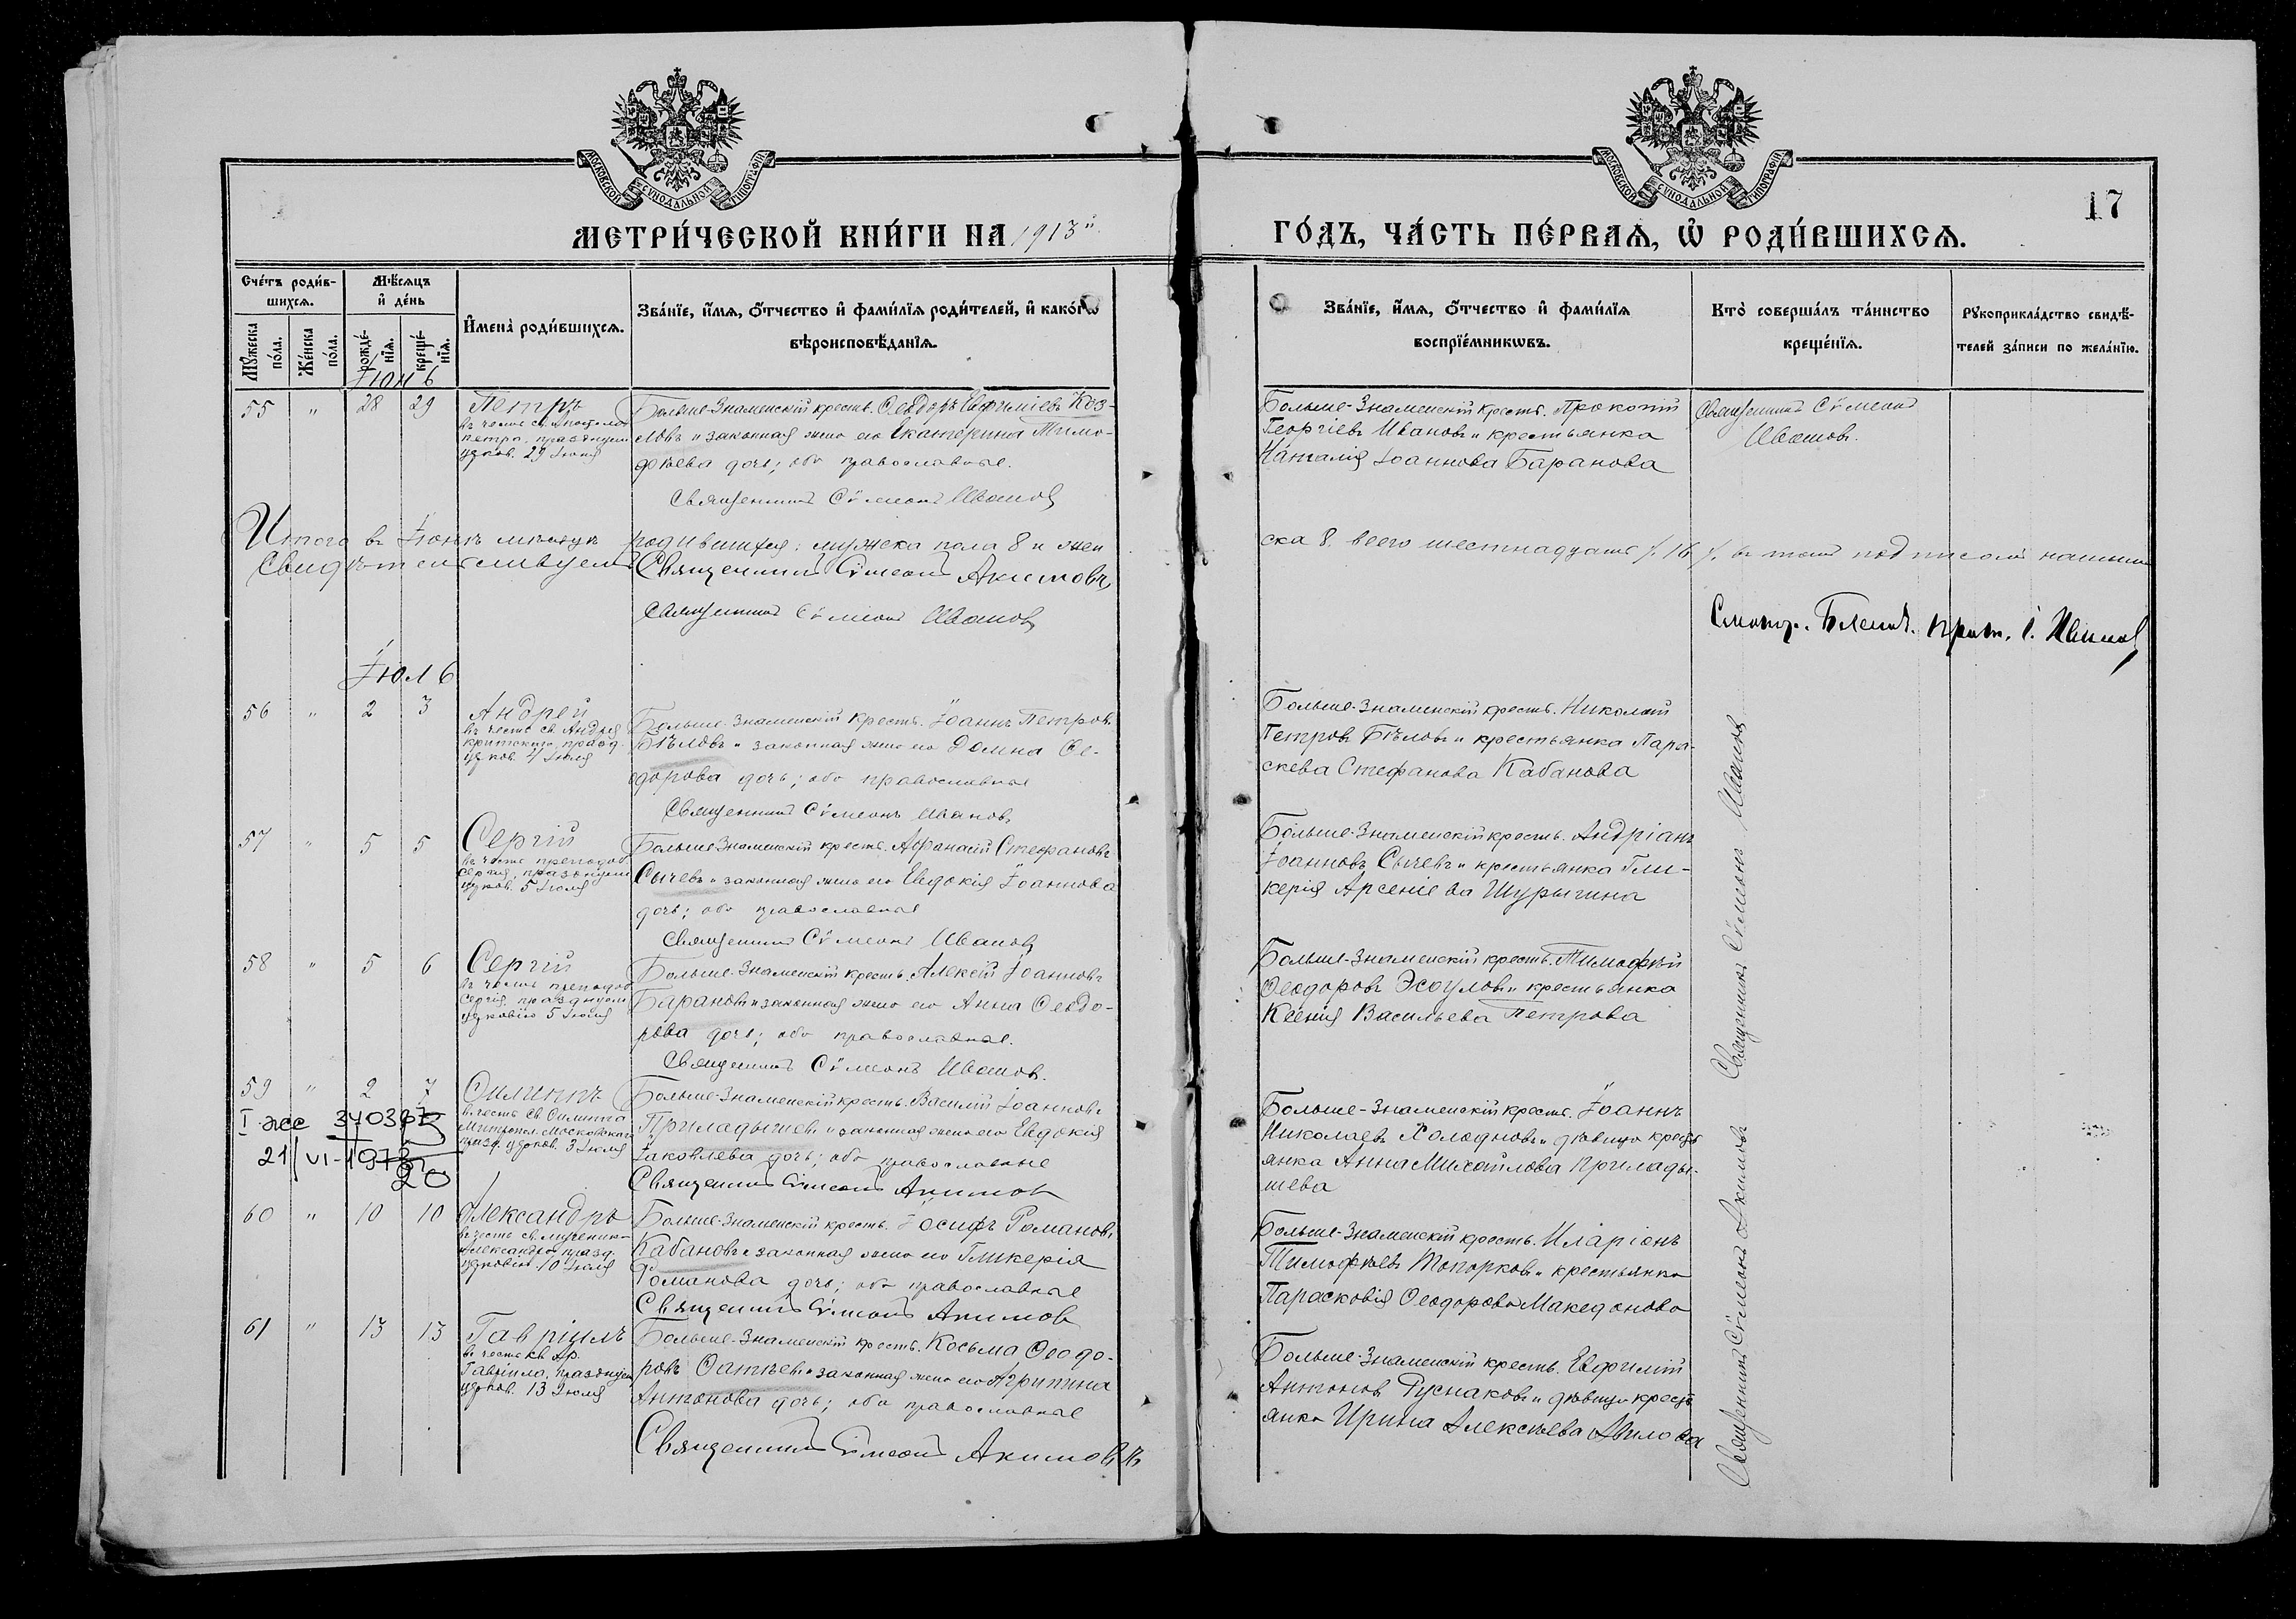 МОСКОВСКОЙ СѴНОДАЛЬНОЙ ТИПОГРАФІИ
МОСКОВСКОЙ СѴНОДАЛЬНОЙ ТИПОГРАФІИ
17
МЕТРИ́ЧЕСКОЙ КНИ́ГИ НА 1913й
ГО́ДЪ, ЧА́СТЬ ПЕ́РВАѦ, Ѡ РОДИ́ВШИХСѦ.
Сче́тъ роди́в-
шихсѧ.
Мѣ́сѧцъ
и҆ де́нь
Мꙋ́жеска по́ла.
Же́нска по́ла.
рожде́-нїѧ.
креще́-нїѧ.
И҆мена̀ роди́вшихсѧ.
Зва́нїе, и҆́мѧ, ѻ҆́тчество и҆ фами́лїѧ роди́телей, и҆ како́гѡ
вѣроисповѣ́данїѧ.
Зва́нїе, и҆́мѧ, ѻ҆́тчество и҆ фами́лїѧ
воспрїе́мникѡвъ.
Кто̀ соверша́лъ та́инство
креще́нїѧ.
Рꙋкоприкла́дство свидѣ́-
телей за́писи по жела́нїю.
Іюнь
55 " 28 29
Петръ
въ честь св. Апостола
Петра, празднуем.
церков. 29 Іюня
Больше-Знаменскій крестьᵃ. Ѳеодоръ Евфиміевъ Коз-
ловъ и законная жена его Екатерина Тимо-
фѣева дочь; оба православные.
Священникъ Сѵмеонъ Ивановъ
Больше-Знаменскій крестьᵃ. Прокопій
Георгіевъ Ивановъ и крестьянка
Наталія Іоаннова Баранова
Священникъ Сѵмеонъ
Ивановъ.
Итого въ Іюнѣ мѣсяцѣ родившихся: мужеска пола 8 и жен
ска 8, всего шестнадцать /. 16 /. въ томъ подписомъ нашимъ
Свидѣтельствуемъ Священникъ Сѵмеонъ Акимовъ
Священникъ Сѵмеонъ Ивановъ
Іюль
56 " 2 3
Андрей
въ честь св. Андрея
критскаго, празд.
церков. 4 Іюля
Больше-Знаменскій крестьᵃ. Іоаннъ Петровъ
Бѣловъ и законная жена его Домна Ѳе-
одорова дочь; оба православные
Священникъ Сѵмеонъ Ивановъ
Больше-Знаменскій крестьᵃ. Николай
Петровъ Бѣловъ и крестьянка Пара-
скева Стефанова Кабанова
57 " 5 5
Сергій
въ честь преподоб.
Сергія, празднуем.
церков. 5 Іюля
Больше-Знаменскій крестьᵃ. Аѳанасій Стефановъ
Сычевъ и законная жена его Евдокія Іоаннова
дочь; оба православные
Священникъ Сѵмеонъ Ивановъ
Больше-Знаменскій крестьᵃ. Андріанъ
Іоанновъ Сычевъ и крестьянка Гли-
керія Арсеніева Шурыгина
58 " 5 6
Сергій
въ честь преподоб.
Сергія, празднуем.
церковію 5 Іюля
Больше-Знаменскій крестьᵃ. Алексій Іоанновъ
Барановъ и законная жена его Анна Ѳеодо-
рова дочь; оба православные.
Священникъ Сѵмеонъ Ивановъ.
Больше-Знаменскій крестьᵃ. Тимофѣй
Ѳеодоровъ Эсауловъ и крестьянка
Ксенія Васильева Петрова
Священникъ Сѵмеонъ Ивановъ
59 " 2 7
Филиппъ
въ честь св. Филиппа
Митропол. Московскаго
празд. церков. 3 Іюля
Больше-Знаменскій крестьᵃ. Василій Іоанновъ
Приладышевъ и законная жена его Евдокія
Іаковлева дочь; оба православные
Священникъ Сѵмеонъ Акимовъ
Больше-Знаменскій крестьᵃ. Іоаннъ
Николаевъ Холодновъ и дѣвица кресть
янка Анна Михайлова Прилады-
шева
60 " 10 10
Александръ
въ честь св. мученик
Александра, празд.
церковію 10 Іюля
Больше-Знаменскій крестьᵃ. Іосифъ Романовъ
Кабановъ и законная жена его Гликерія
Романова дочь; оба православные
Священникъ Сѵмеонъ Акимовъ
Больше-Знаменскій крестьᵃ. Иларіонъ
Тимофѣевъ Топорковъ и крестьянка
Парасковія Ѳеодорова Македонова
61 " 13 13
Гавріилъ
въ честь св. Ар.
Гавріила, празднуем
церков. 13 Іюля
Больше-Знаменскій крестьᵃ. Косьма Ѳеодо-
ровъ Фатѣевъ и законная жена его Агрипина
Антонова дочь; оба православные
Священникъ Сѵмеонъ Акимовъ
Больше-Знаменскій крестьᵃ. Евфимій
Антоновъ Руснаковъ и дѣвица кресть
янка Ирина Алексѣева Авилова
Священникъ Сѵмеонъ Акимовъ